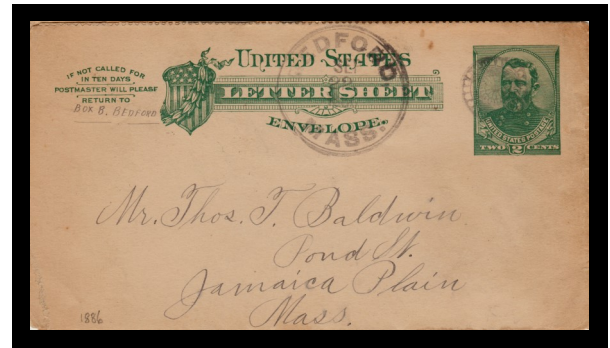 IF NOT CALLED FOR
IN TEN DAYS
POSTMASTER WILL PLEASE
RETURN TO
Box 8, BEDFORD
UNITED STATES
LETTER SHEET
ENVELOPE.
9
BEDFORD
MASS.
UNITED STATES POSTAGE
TWO 2 CENTS
Mr. Thos. T. Baldwin
Pond St.
Jamaica Plain
Mass.
1886